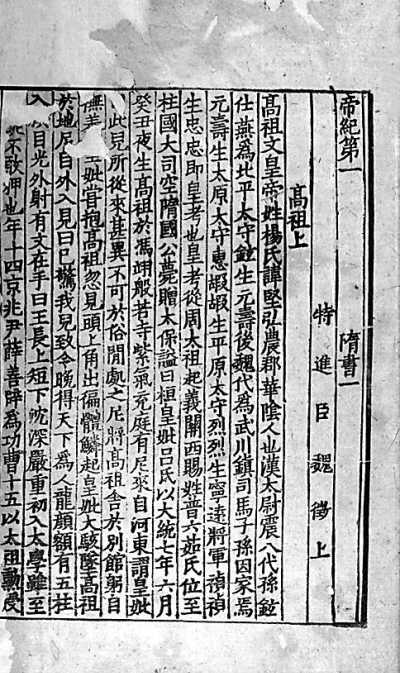 帝紀第一 隋書一
特進臣魏徵上
高祖上
高祖文皇帝姓楊氏諱堅弘農郡華陰人也漢太尉震八代孫鉉
仕燕為北平太守鉉生元壽後魏代為武川鎮司馬子孫因家焉
元壽生太原太守惠嘏嘏生平原太守烈烈生寧遠將軍禎禎
生忠忠即皇考也皇考從周太祖起義關西賜姓普六茹氏位至
柱國大司空隋國公薨贈太保謚曰桓皇妣呂氏以大統七年六月
癸丑夜生高祖於馮翊般若寺紫氣充庭有尼來自河東謂皇妣
此兒所從來甚異不可於俗間處之尼將高祖舍於別館躬自
撫養皇妣甞抱高祖忽見頭上角出徧體鱗起皇妣大駭墜高祖
於地尼自外入見曰已驚我兒致令晚得天下為人龍顏額有五柱
入 目光外射有文在手曰王長上短下沈深嚴重初入太學雖至
不敢狎也年十四京兆尹薛善辟為功曹十五以太祖勳授